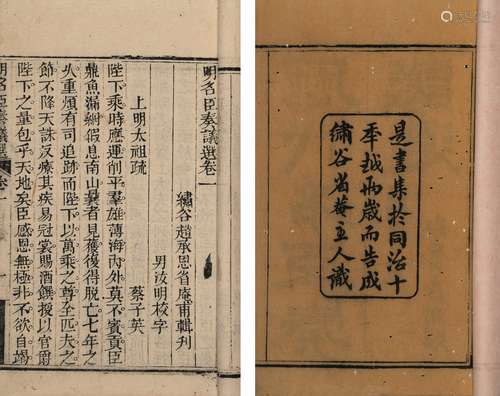 是書集於同治十
秊越兩歲而告成
繡谷省菴主人識
明名臣奏議選卷一
繡谷趙承恩省庵甫輯刊
男汝明校字
上明太祖疏
蔡子英
陛下乘時應運削平羣雄薄海內外莫不賓貢臣
鼎魚漏網假息南山曩者見獲復得脫亡七年之
久重煩有司追跡而陛下以萬乘之尊全匹夫之
節不降天誅反療其疾易冠裳賜酒饌授以官爵
陛下之量包乎天地矣臣感恩無極非不欲自竭
明名臣奏議選 卷一